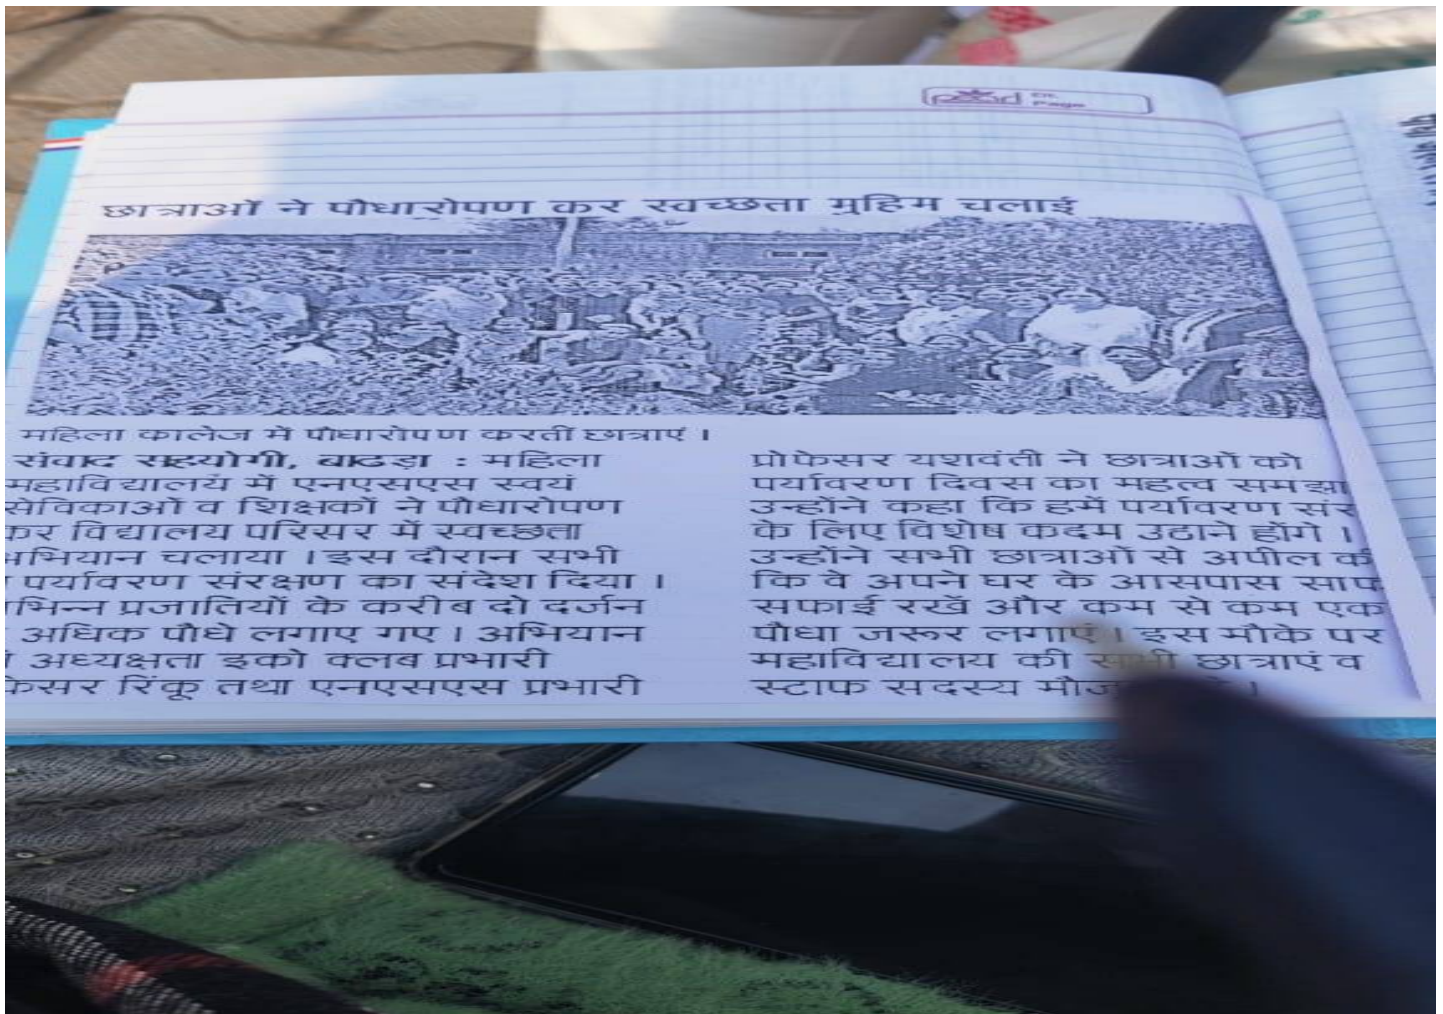 pearl
Dt.
Page
छात्राओं ने पौधारोपण कर स्वच्छता मुहिम चलाई
महिला कालेज में पौधारोपण करतीं छात्राएं ।
संवाद सहयोगी, बाढड़ा : महिला
महाविद्यालय में एनएसएस स्वयं
सेविकाओं व शिक्षकों ने पौधारोपण
कर विद्यालय परिसर में स्वच्छता
अभियान चलाया । इस दौरान सभी
पर्यावरण संरक्षण का संदेश दिया ।
भिन्न प्रजातियों के करीब दो दर्जन
अधिक पौधे लगाए गए । अभियान
अध्यक्षता इको क्लब प्रभारी
फेसर रिंकू तथा एनएसएस प्रभारी
प्रोफेसर यशवंती ने छात्राओं को
पर्यावरण दिवस का महत्व समझा
उन्होंने कहा कि हमें पर्यावरण संर
के लिए विशेष कदम उठाने होंगे ।
उन्होंने सभी छात्राओं से अपील की
कि वे अपने घर के आसपास साफ
सफाई रखें और कम से कम एक
पौधा जरूर लगाएं । इस मौके पर
महाविद्यालय की सभी छात्राएं व
स्टाफ सदस्य